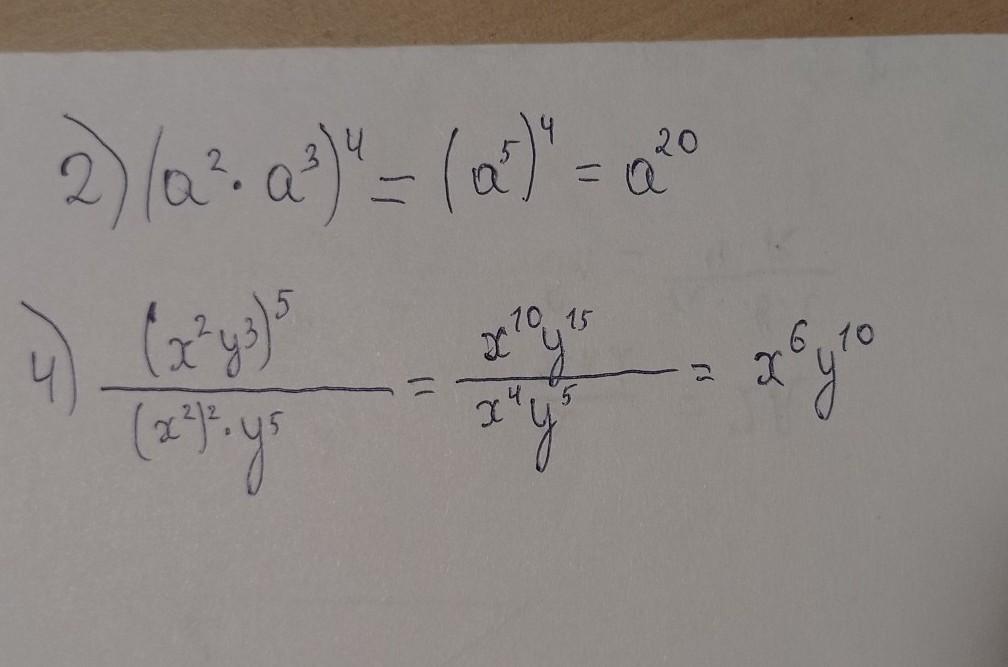 2) (a²·a³)⁴ = (a⁵)⁴ = a²⁰
4) (x²y³)⁵ / (x²)²·y⁵ = x¹⁰y¹⁵ / x⁴y⁵ = x⁶y¹⁰